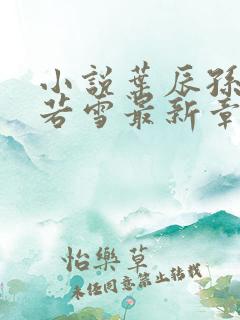 小說葉辰孫
若雪最新章
怡樂草
未经同意禁止转载